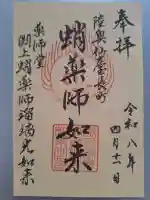 奉拝
陸奥仙台長町
蛸薬師如来
薬師堂
上蛸薬師瑠璃光如来
令和八年
四月十日